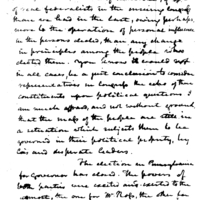 of real federalists in the ensuing Congress
than we had in the last, owing perhaps,
more to the operation of personal influence
in the persons elected, than any change
in principles among the people who
elected them. You know it would not
in all cases, be a just conclusion to consider
representatives in Congress the echo of their
constituents upon political questions. I
am much afraid, and not without ground,
that the mass of the people are still in
a situation which subjects them to be
governed in their political property, by
and desperate leaders.
The election in Pennsylvania
for Governor has closed. The powers of
both parties were excited and exerted to the
utmost, the one for Mr Ross, the other for